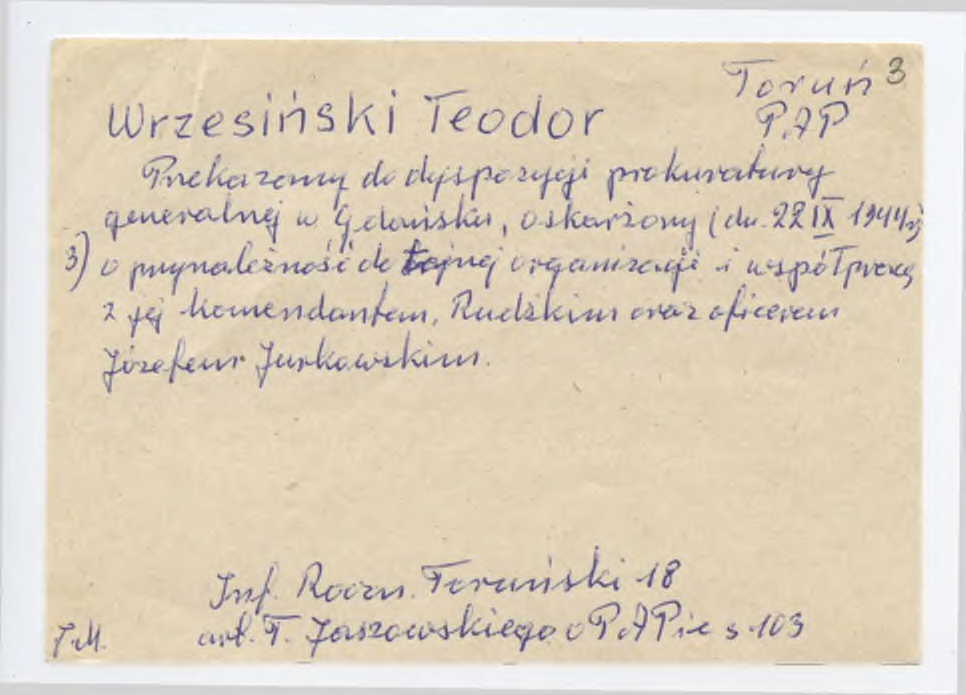 Toruń 3
Wrzesiński Teodor P.AP
Przekazany do dyspozycji prokuratury
generalnej w Gdańsku, oskarżony (dn. 22 IX 1944 r.)
3) o przynależność do tajnej organizacji i współpracę
z jej komendantem, Rudzkim oraz oficerem
Józefem Jurkowskim.
Inf. Roczn. Toruński 18
art. T. Jaszowskiego o P.AP ie s 103
J.M.